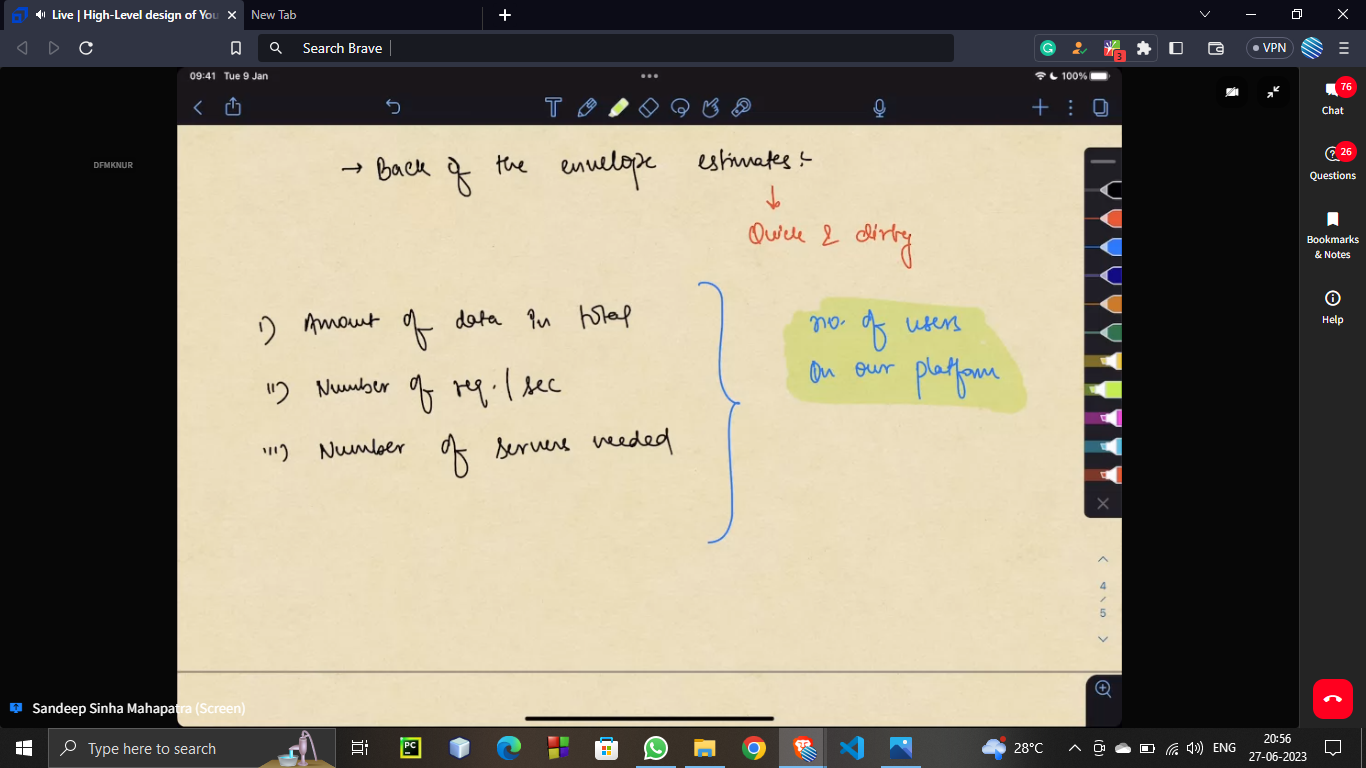 Live | High-Level design of You
New Tab
Search Brave
3
VPN
09:41 Tue 9 Jan
100%
DFMKNUR
→ Back of the envelope estimates :-
Quick & dirty
i) Amount of data in total
ii) Number of req. / sec
iii) Number of servers needed
no. of users
on our platform
4
5
76
Chat
26
Questions
Bookmarks
& Notes
Help
Sandeep Sinha Mahapatra (Screen)
Type here to search
PC
28°C
ENG
20:56
27-06-2023